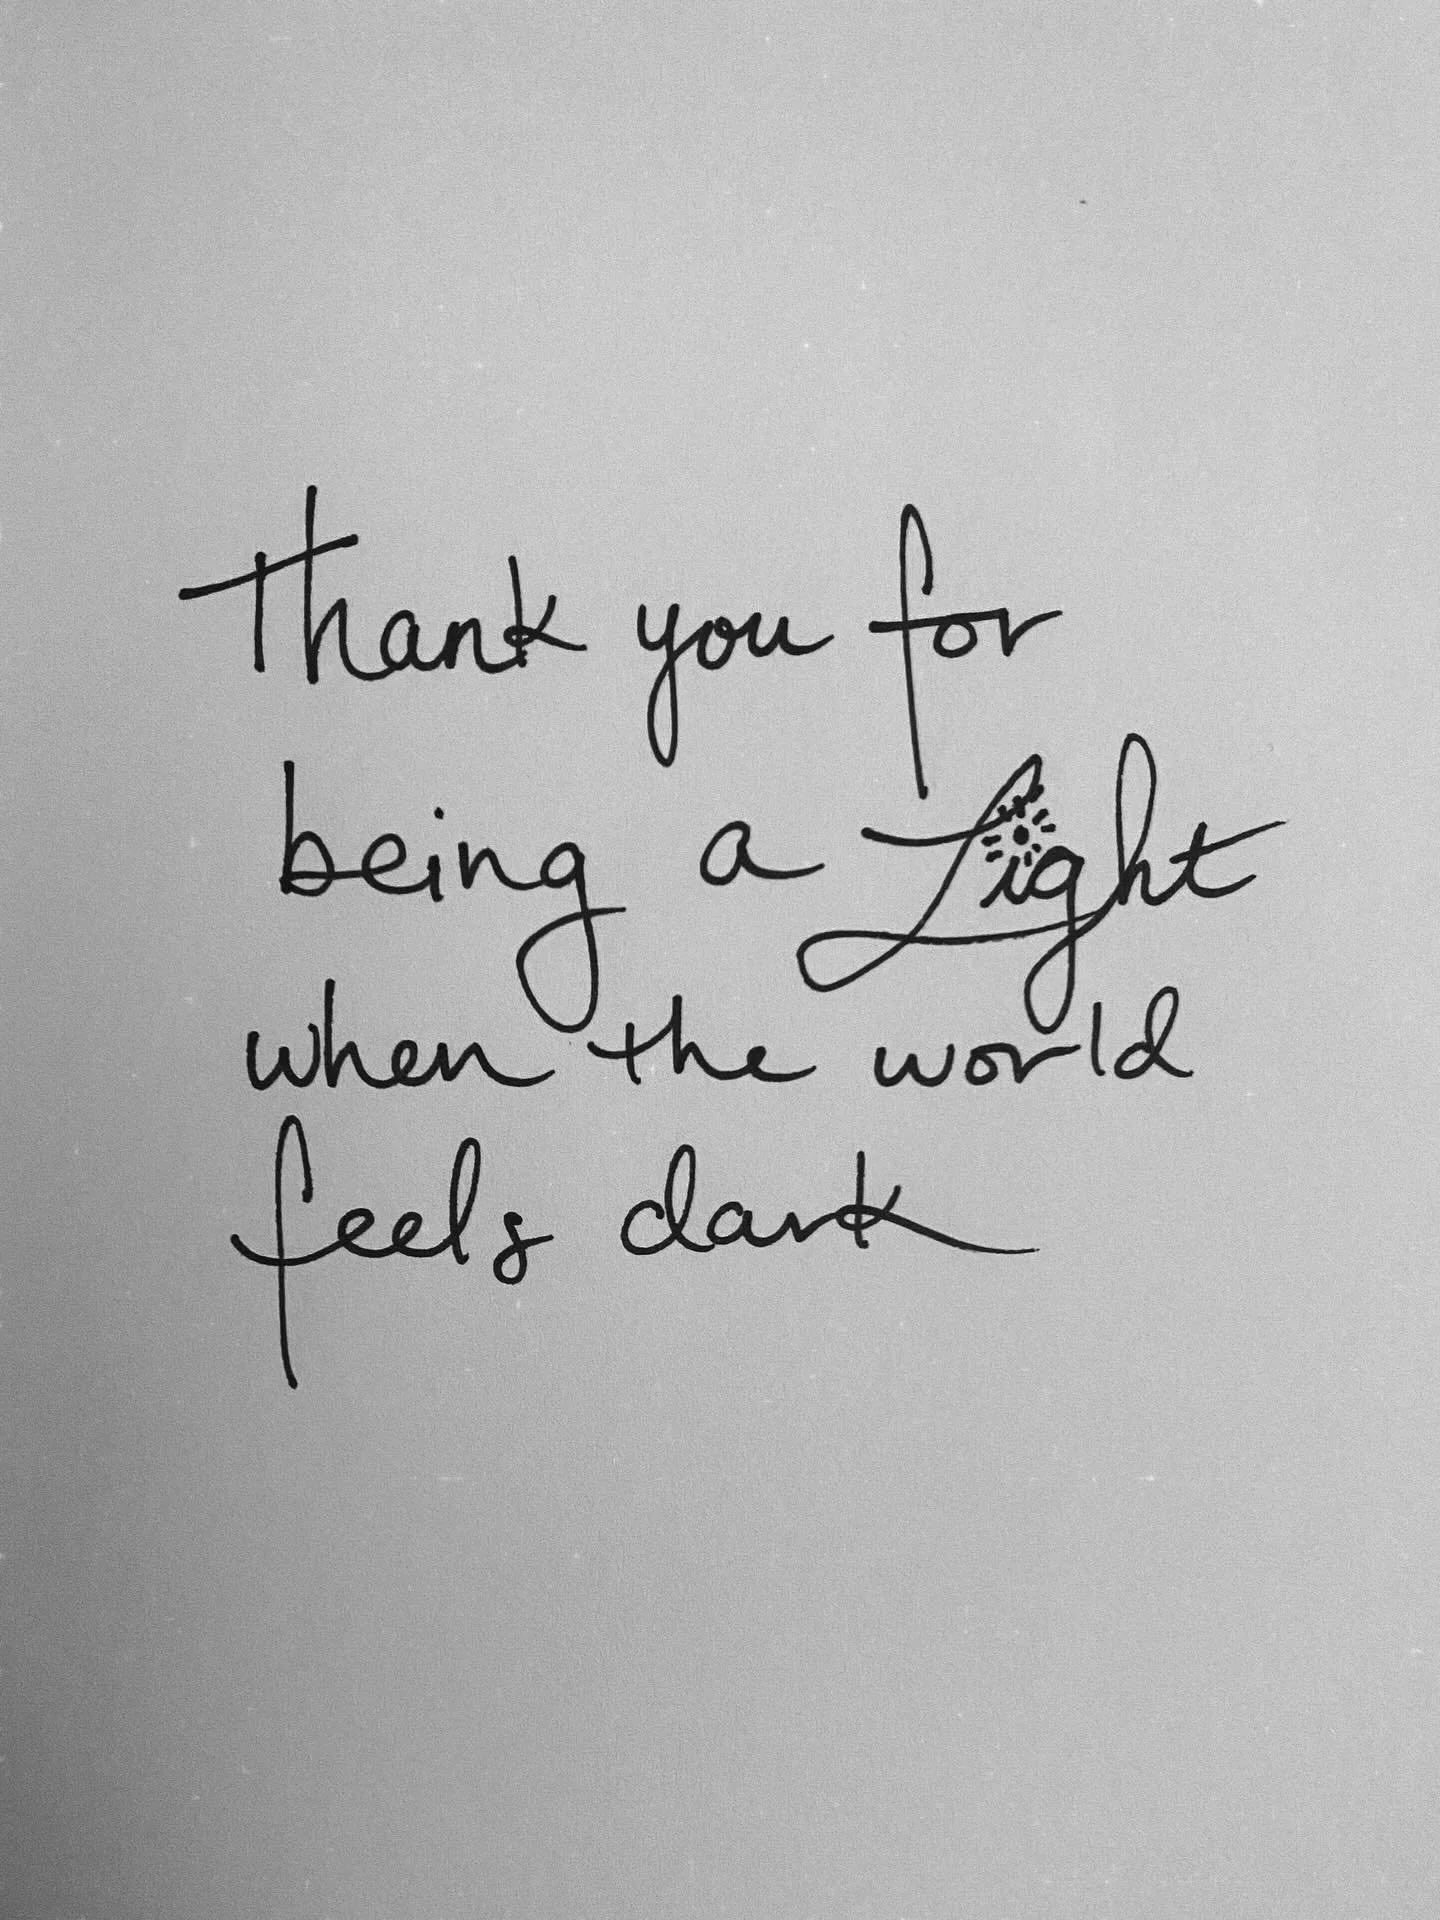 Thank you for
being a Light
when the world
feels dark